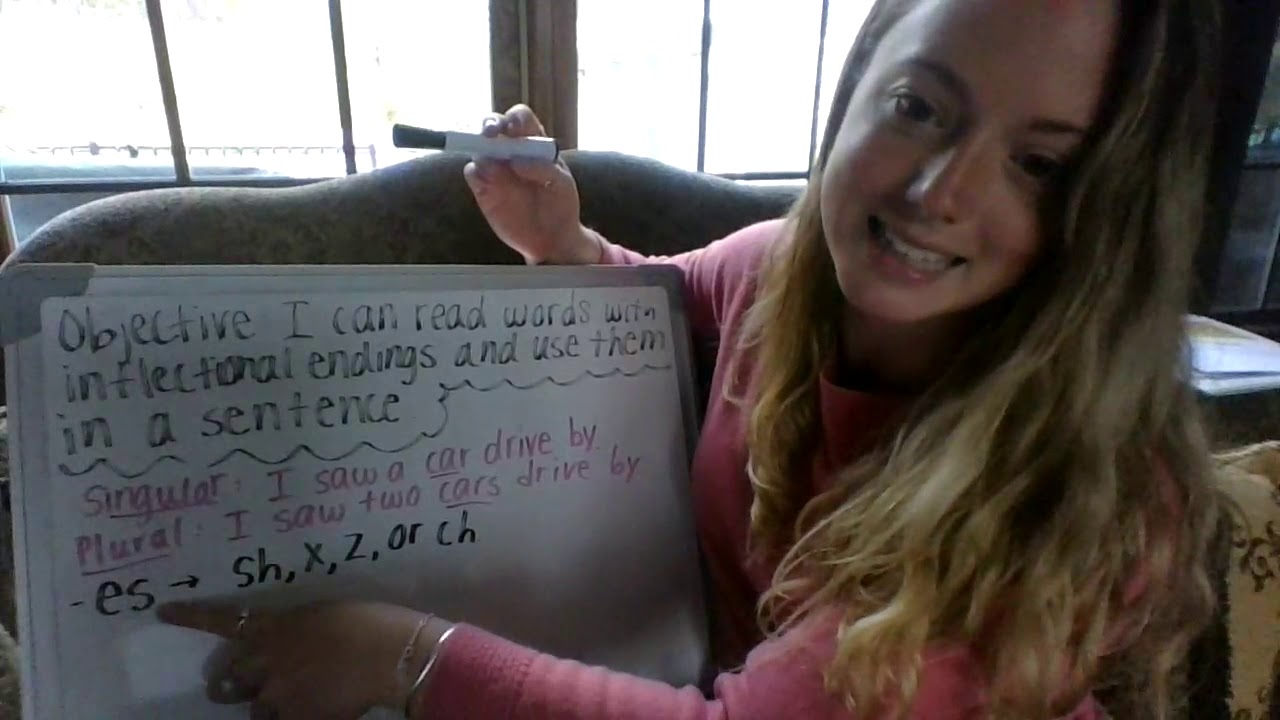 Objective I can read words with
inflectional endings and use them
in a sentence
Singular: I saw a car drive by.
Plural: I saw two cars drive by
-es → sh, x, z, or ch